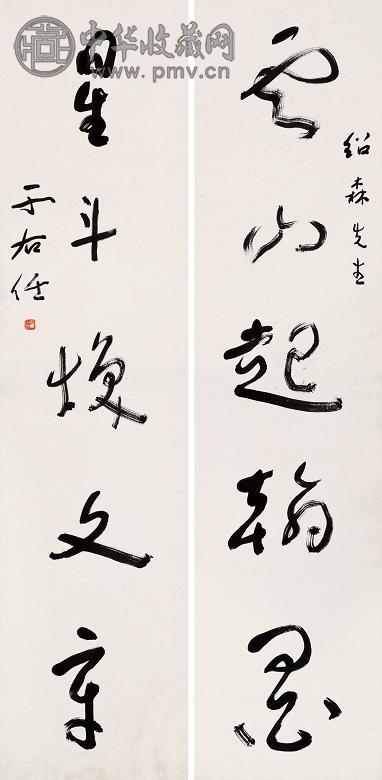 中华收藏网
www.pmv.cn
绍森先生
云山起翰墨
星斗焕文章
于右任